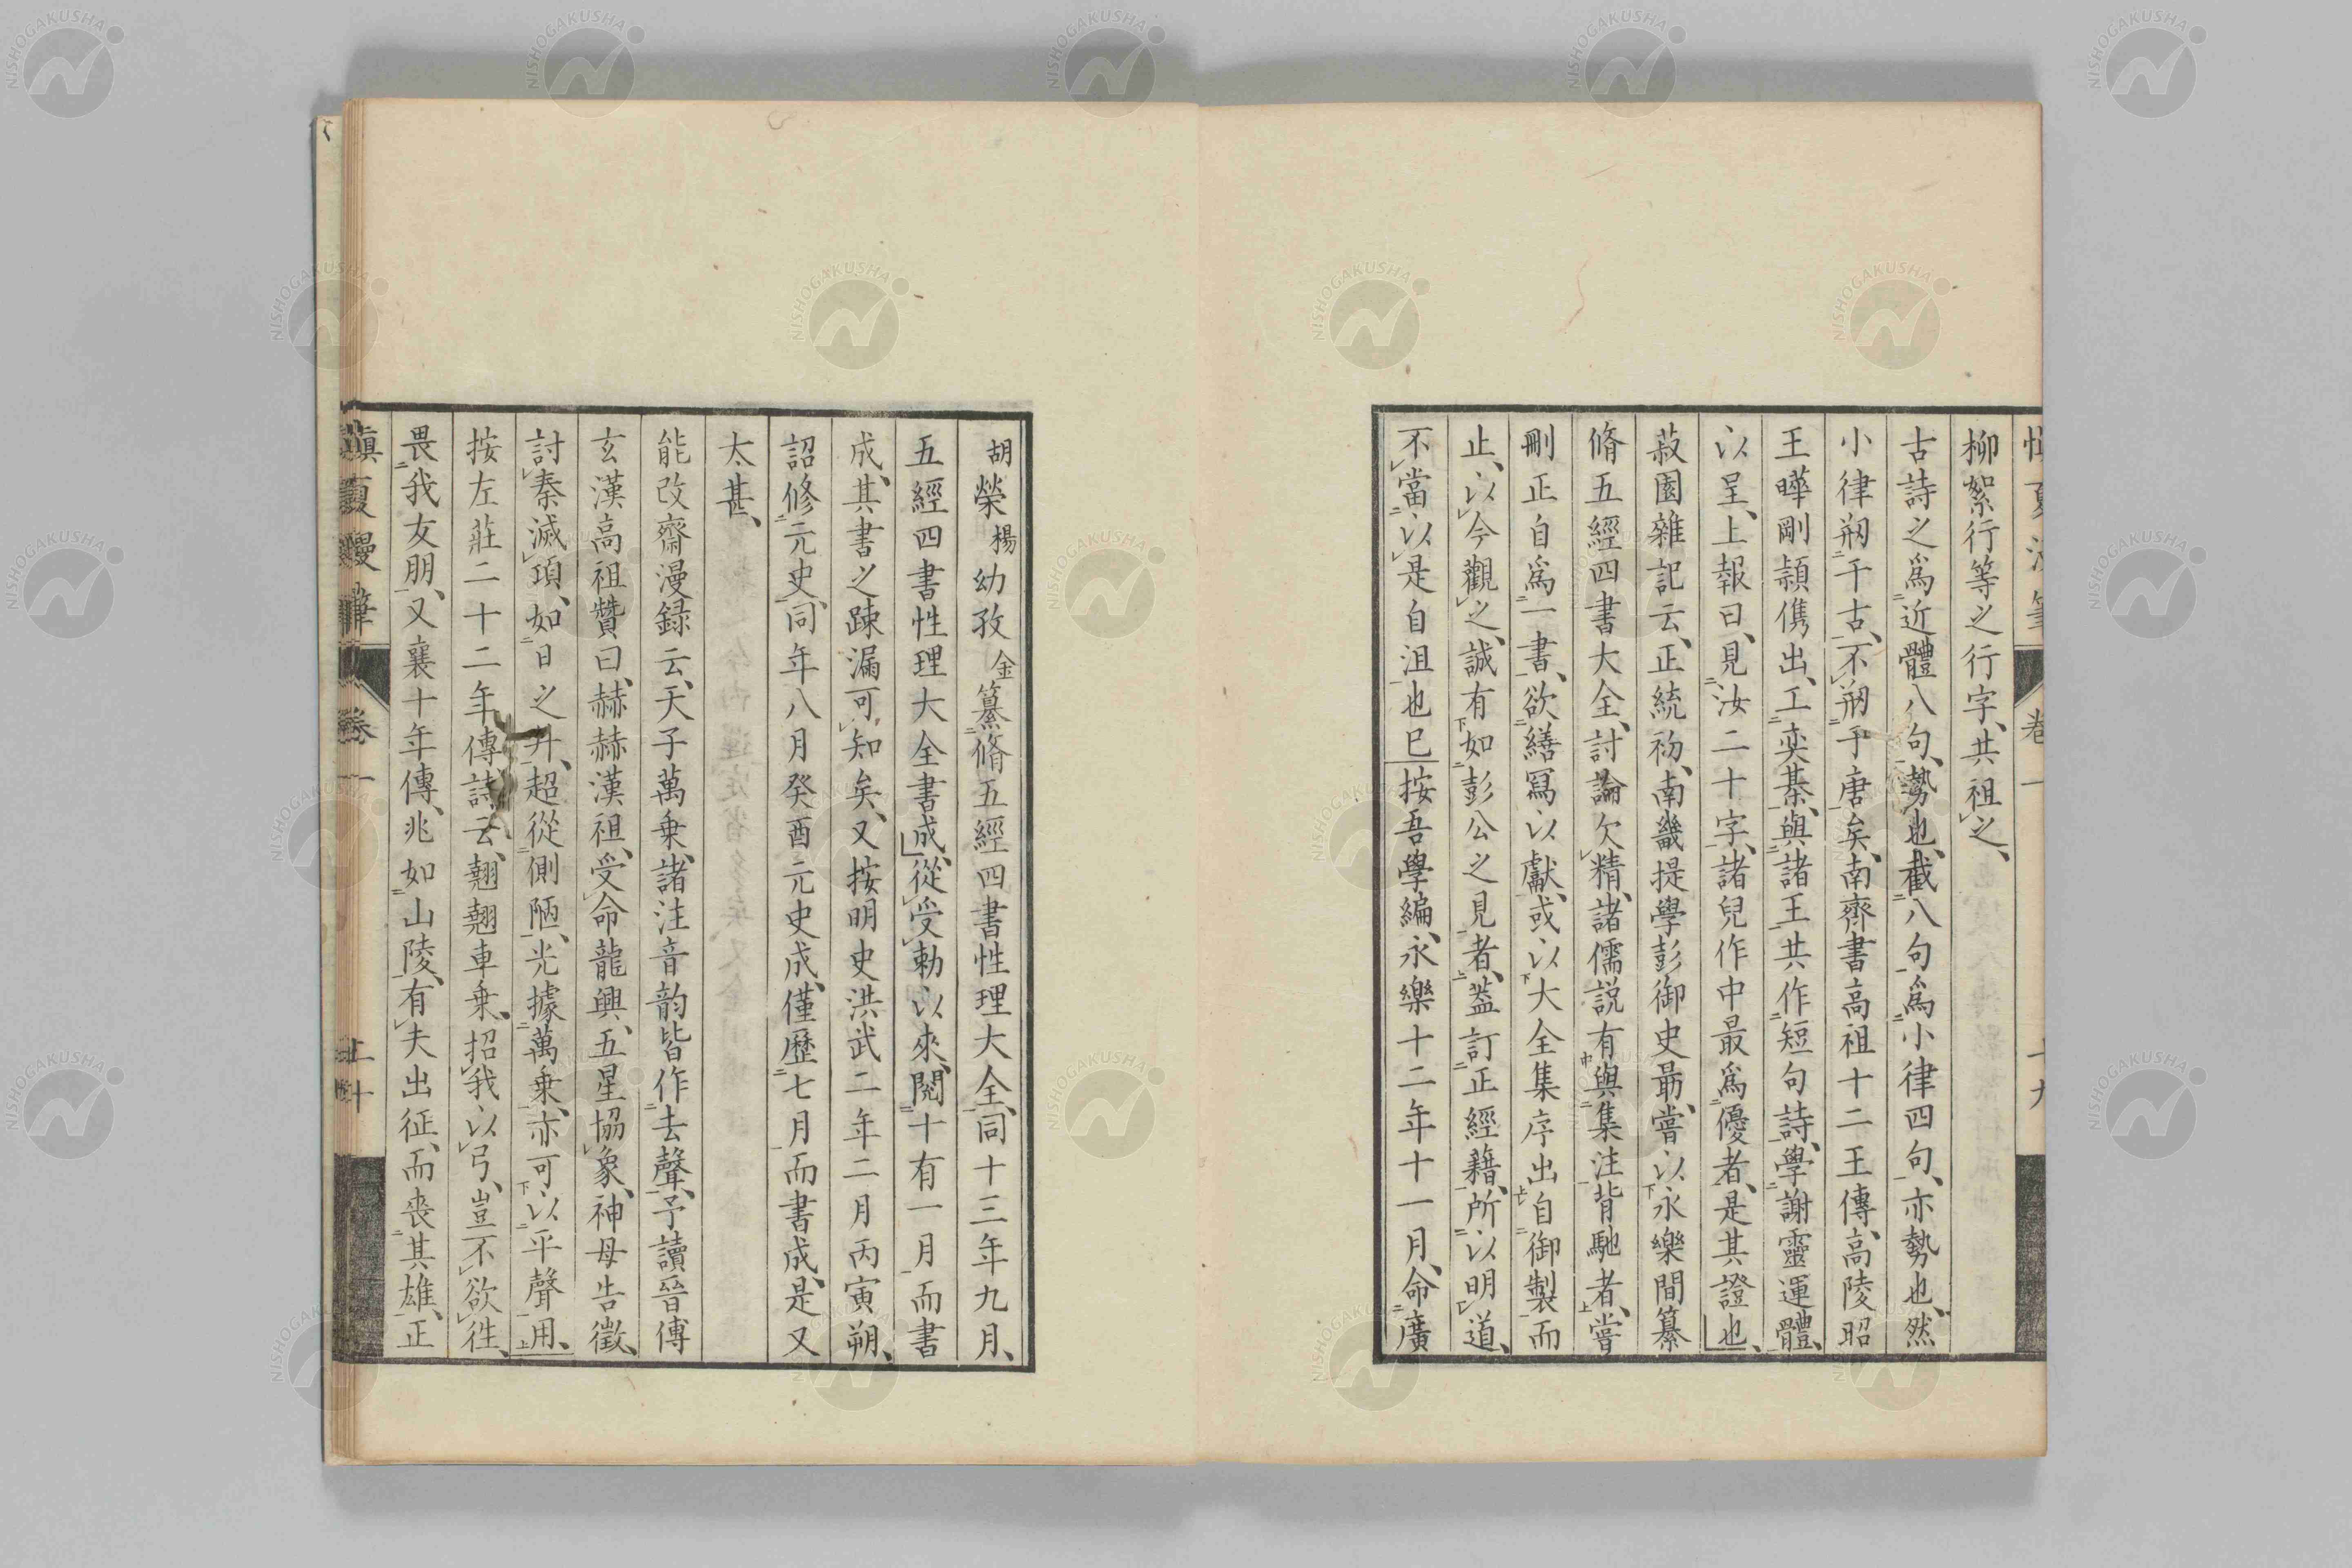 柳絮行等之行字、共祖之、
古詩之爲近體八句、勢也、截八句爲小律四句、亦勢也、然
小律刱于古、不刱于唐矣、南齊書高祖十二王傳、高陵昭
王曄剛穎儁出、工奕棊、與諸王共作短句詩、學謝靈運體、
以呈、上報曰、見汝二十字、諸兒作中最爲優者、是其證也、
菽園雜記云、正統初、南畿提學彭御史勗、嘗以永樂間纂
脩五經四書大全、討論欠精、諸儒説有與集注背馳者、嘗
刪正自爲一書、欲繕寫以獻、或以大全集序出自御製而
止、以今觀之、誠有如彭公之見者、葢訂正經籍、所以明道、
不當以是自沮也已按吾學編、永樂十二年十一月、命廣
胡榮楊幼孜金纂脩五經四書性理大全、同十三年九月、
五經四書性理大全書成、從受勅以來、閲十有一月、而書
成、其書之踈漏可知矣、又按明史洪武二年二月丙寅朔、
詔修元史、同年八月癸酉元史成、僅歷七月、而書成、是又
太甚、
能改齋漫録云、天子萬乗、諸注音韵皆作去聲、予讀晉傅
玄漢高祖贊曰、赫赫漢祖、受命龍興、五星協象、神母告徵、
討秦滅項、如日之升、超從側陋、光據萬乗、亦可以平聲用、
按左莊二十二年傳、詩云、翹翹車乗、招我以弓、豈不欲徃、
畏我友朋、又襄十年傳、兆如山陵、有夫出征、而喪其雄、正
愼夏漫筆
卷一